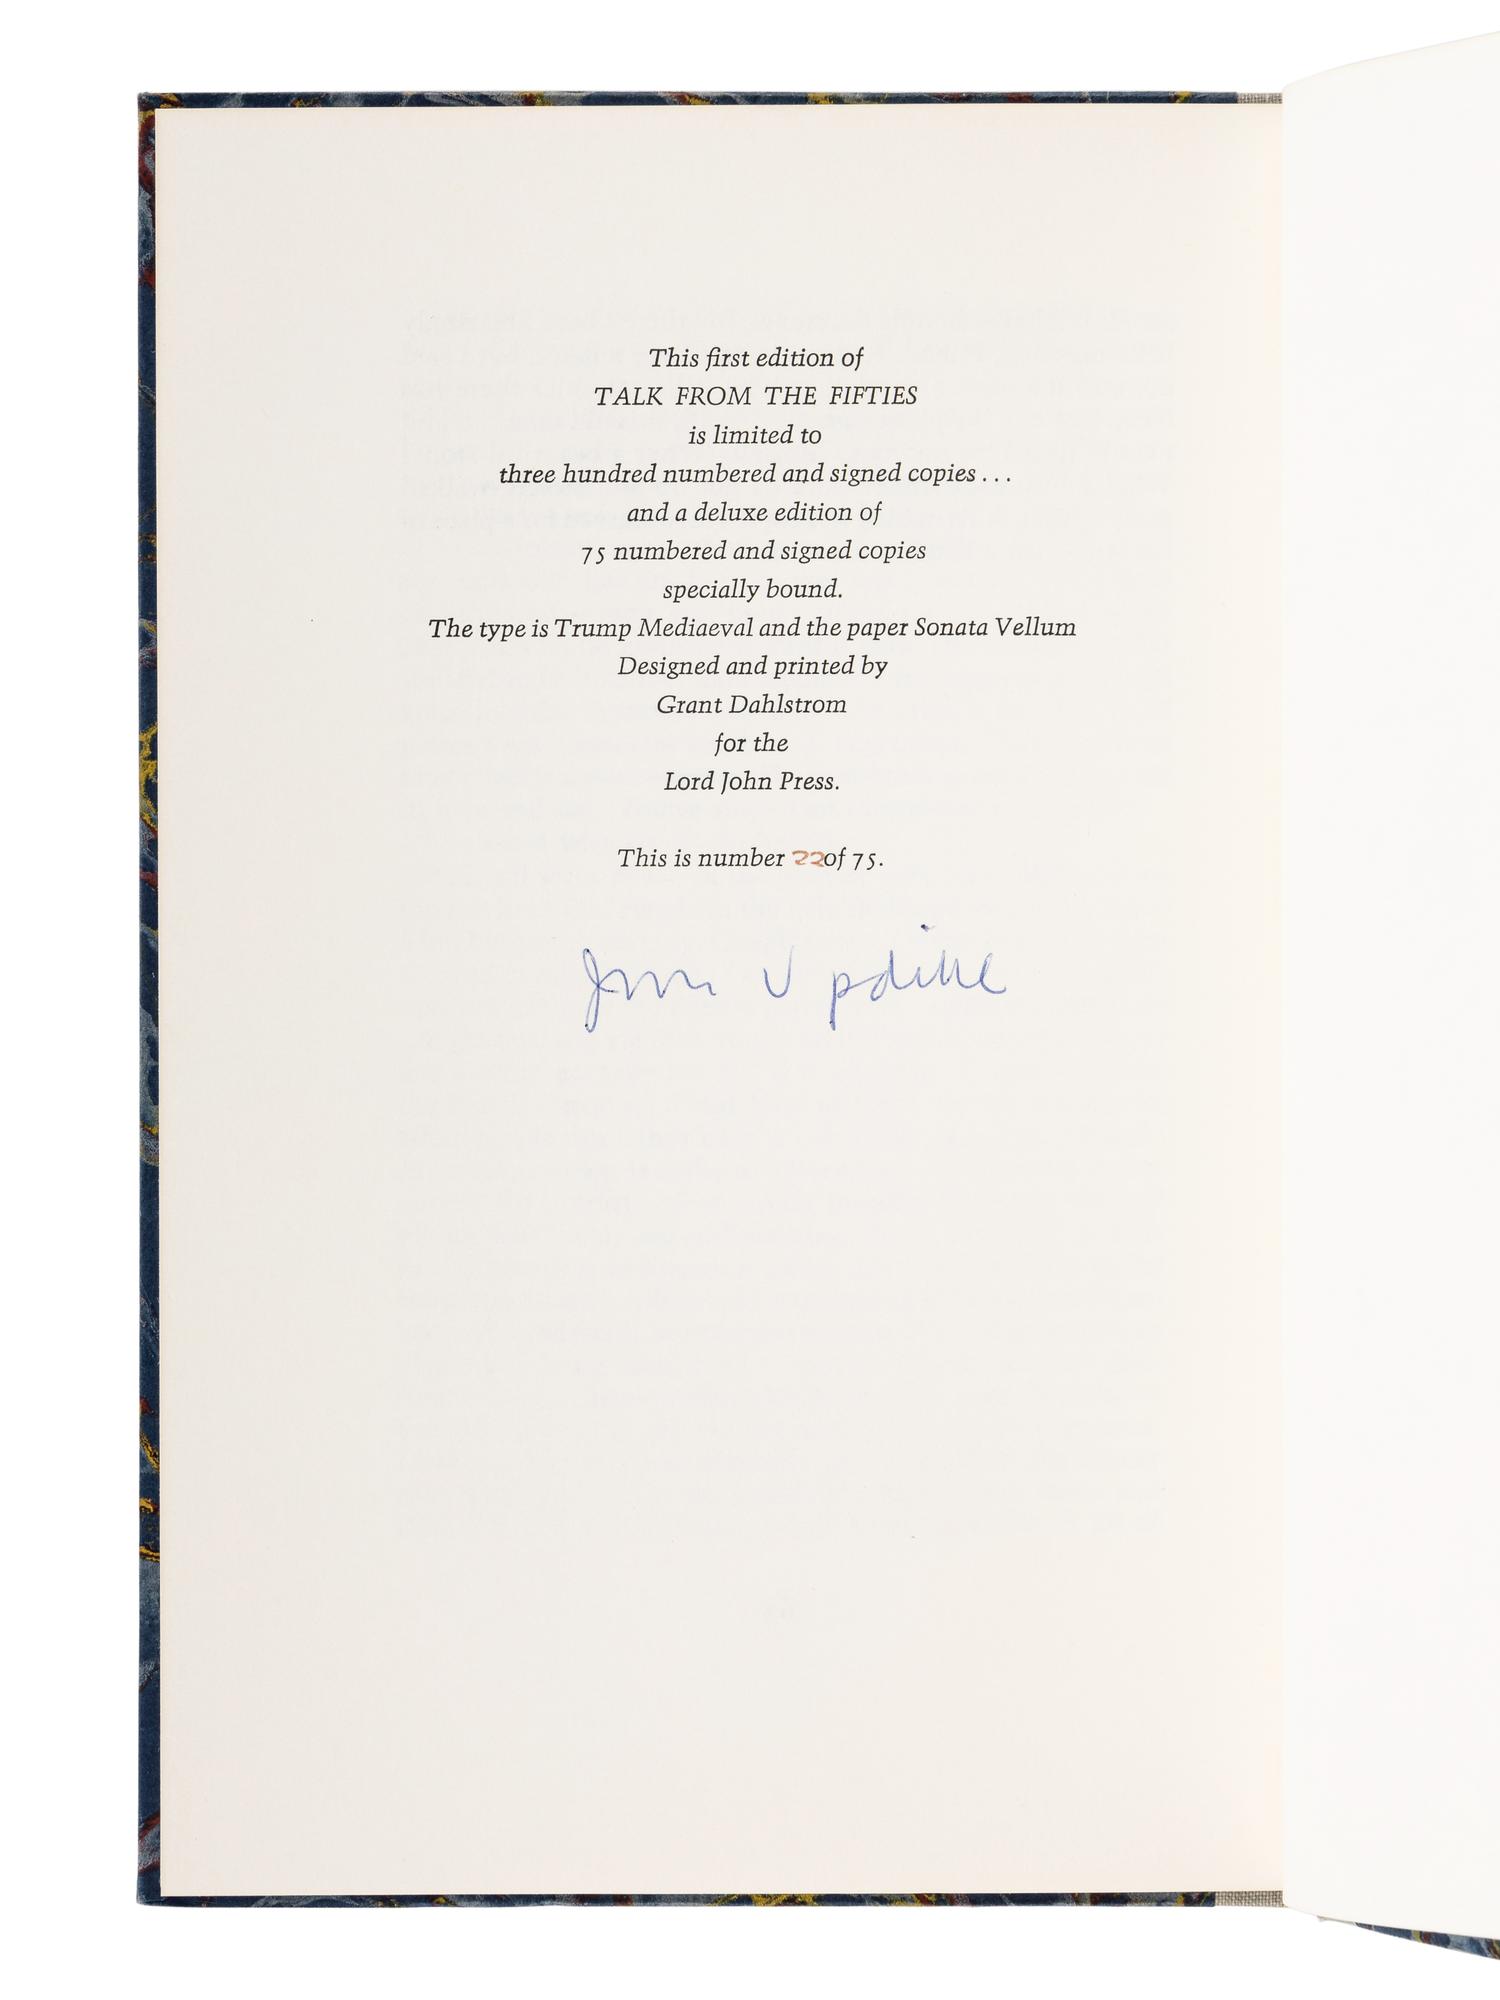 This first edition of
TALK FROM THE FIFTIES
is limited to
three hundred numbered and signed copies . . .
and a deluxe edition of
75 numbered and signed copies
specially bound.
The type is Trump Mediaeval and the paper Sonata Vellum
Designed and printed by
Grant Dahlstrom
for the
Lord John Press.
This is number 22 of 75.
John Updike